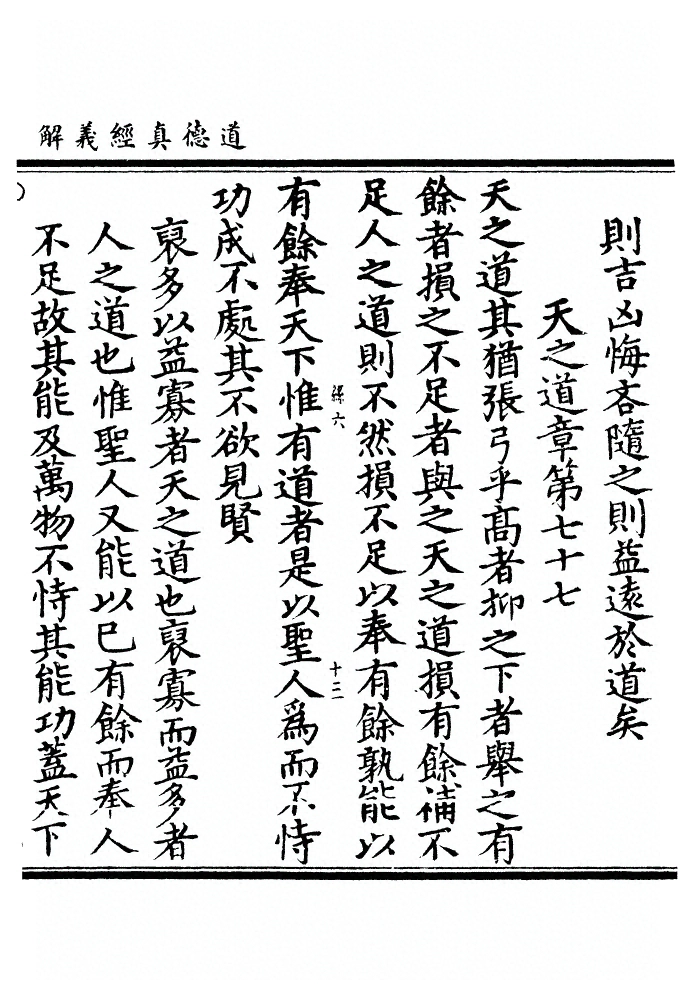 道德真經義解
則吉凶悔吝隨之則益遠於道矣
天之道章第七十七
天之道其猶張弓乎髙者抑之下者舉之有
餘者損之不足者與之天之道損有餘補不
足人之道則不然損不足以奉有餘孰能以
十三
有餘奉天下惟有道者是以聖人爲而不恃
功成不處其不欲見賢
裒多以益寡者天之道也裒寡而益多者
人之道也惟聖人又能以巳有餘而奉人
不足故其能及萬物不恃其能功蓋天下